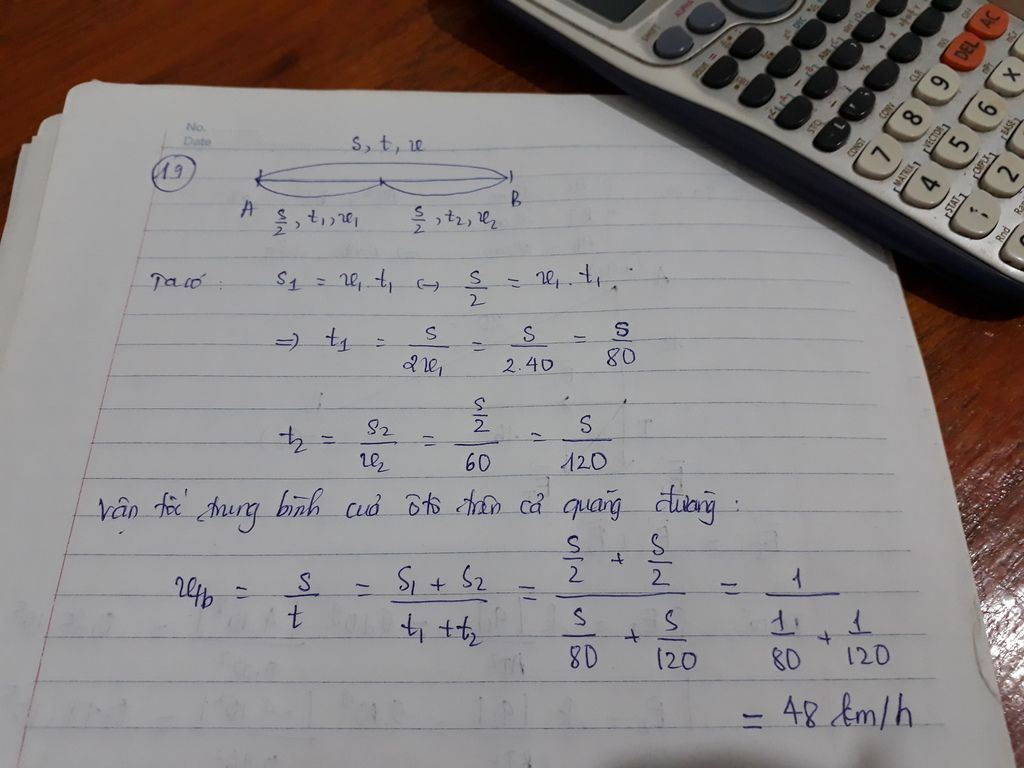 No.
Date
19
S, t, v
A
B
S/2, t1, v1
S/2, t2, v2
Ta có: S1 = v1.t1 ↔ S/2 = v1.t1
=> t1 = S/2v1 = S/2.40 = S/80
t2 = S2/v2 = (S/2)/60 = S/120
Vận tốc trung bình của ôtô trên cả quãng đường:
vtb = S/t = (S1 + S2)/(t1 + t2) = (S/2 + S/2)/(S/80 + S/120) = 1/(1/80 + 1/120)
= 48 km/h
ALPHA
SHIFT
AC
DEL
STO
CLR
OPT
CONV
CONST
7
8
9
MATRIX
VECTOR
4
5
6
X
STAT
CMPLX
BASE
1
2
Rnd
Ran#